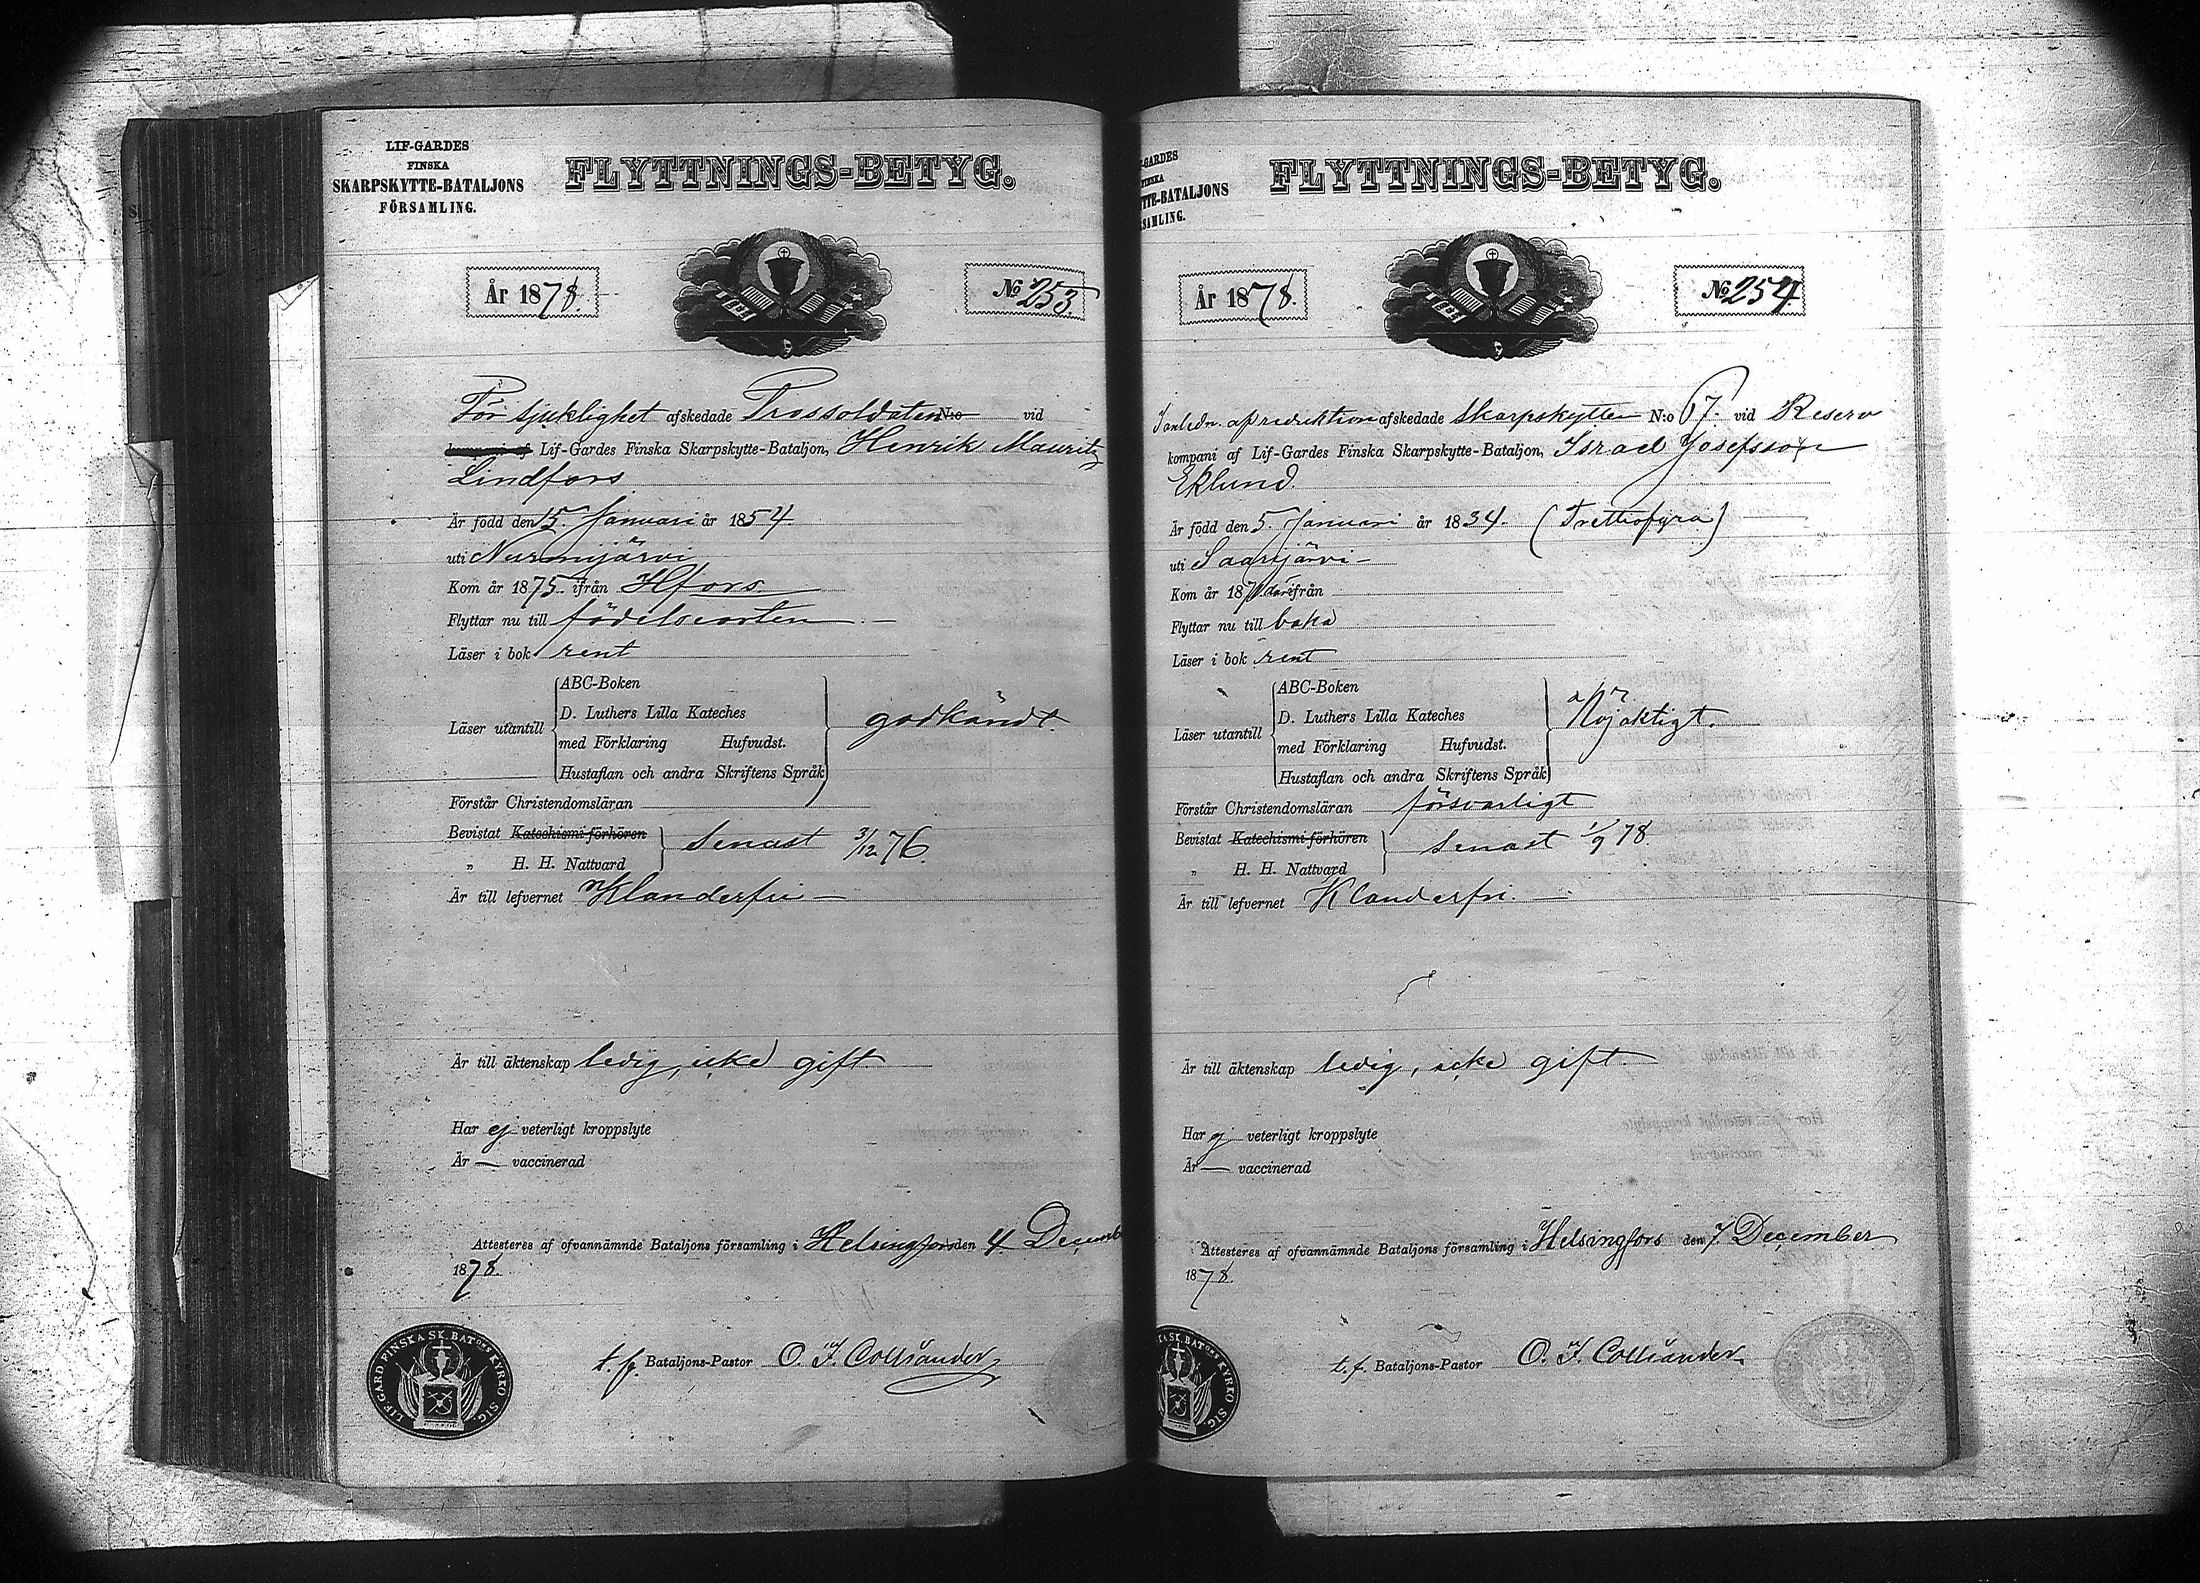 LIF-GARDES
FINSKA
SKARPSKYTTE-BATALJONS
FÖRSAMLING.
FLYTTNINGS-BETYG.
År 1878.
No 253.
För sjuklighet afskedade Trossoldaten N:o vid
kompani af Lif-Gardes Finska Skarpskytte-Bataljon, Henrik Mauritz
Lindfors
Är född den 15. Januari år 1854
uti Nurmijärvi
Kom år 1875 ifrån Hfors.
Flyttar nu till födelseorten
Läser i bok rent
ABC-Boken
D. Luthers Lilla Kateches
Läser utantill godkändt.
med Förklaring Hufvudst.
Hustaflan och andra Skriftens Språk
Förstår Christendomsläran
Bevistat Katechismi förhören
senast 3/12 76.
„ H. H. Nattvard
Är till lefvernet Klanderfri
Är till äktenskap ledig, icke gift
Har ej veterligt kroppslyte
Är — vaccinerad
Attesteres af ofvannämnde Bataljons församling i Helsingfors den 4 December
1878.
LIF.GARD FINSKA SK. BATONS KYRKO SIG.
t. f. Bataljons-Pastor O. F. Colliander
-GARDES
TTE-BATALJONS
SAMLING.
FLYTTNINGS-BETYG.
År 1878.
No 254.
I anledn. af reduktion afskedade Skarpskytten N:o 67. vid Reserv
kompani af Lif-Gardes Finska Skarpskytte-Bataljon, Israel Josefsson
Eklund.
Är född den 5. Januari år 1834. (Trettiofyra)
uti Saarijärvi
Kom år 187 ifrån
Flyttar nu till
Läser i bok rent
ABC-Boken
D. Luthers Lilla Kateches
Läser utantill Nöjaktigt.
med Förklaring Hufvudst.
Hustaflan och andra Skriftens Språk
Förstår Christendomsläran försvarligt
Bevistat Katechismi förhören
senast 1/9 78.
„ H. H. Nattvard
Är till lefvernet Klanderfri.
Är till äktenskap ledig, icke gift
Har ej veterligt kroppslyte
Är — vaccinerad
Attesteres af ofvannämnde Bataljons församling i Helsingfors den 7 December
1878.
KA SK. BATONS KYRKO SIG.
t. f. Bataljons-Pastor O. F. Colliander